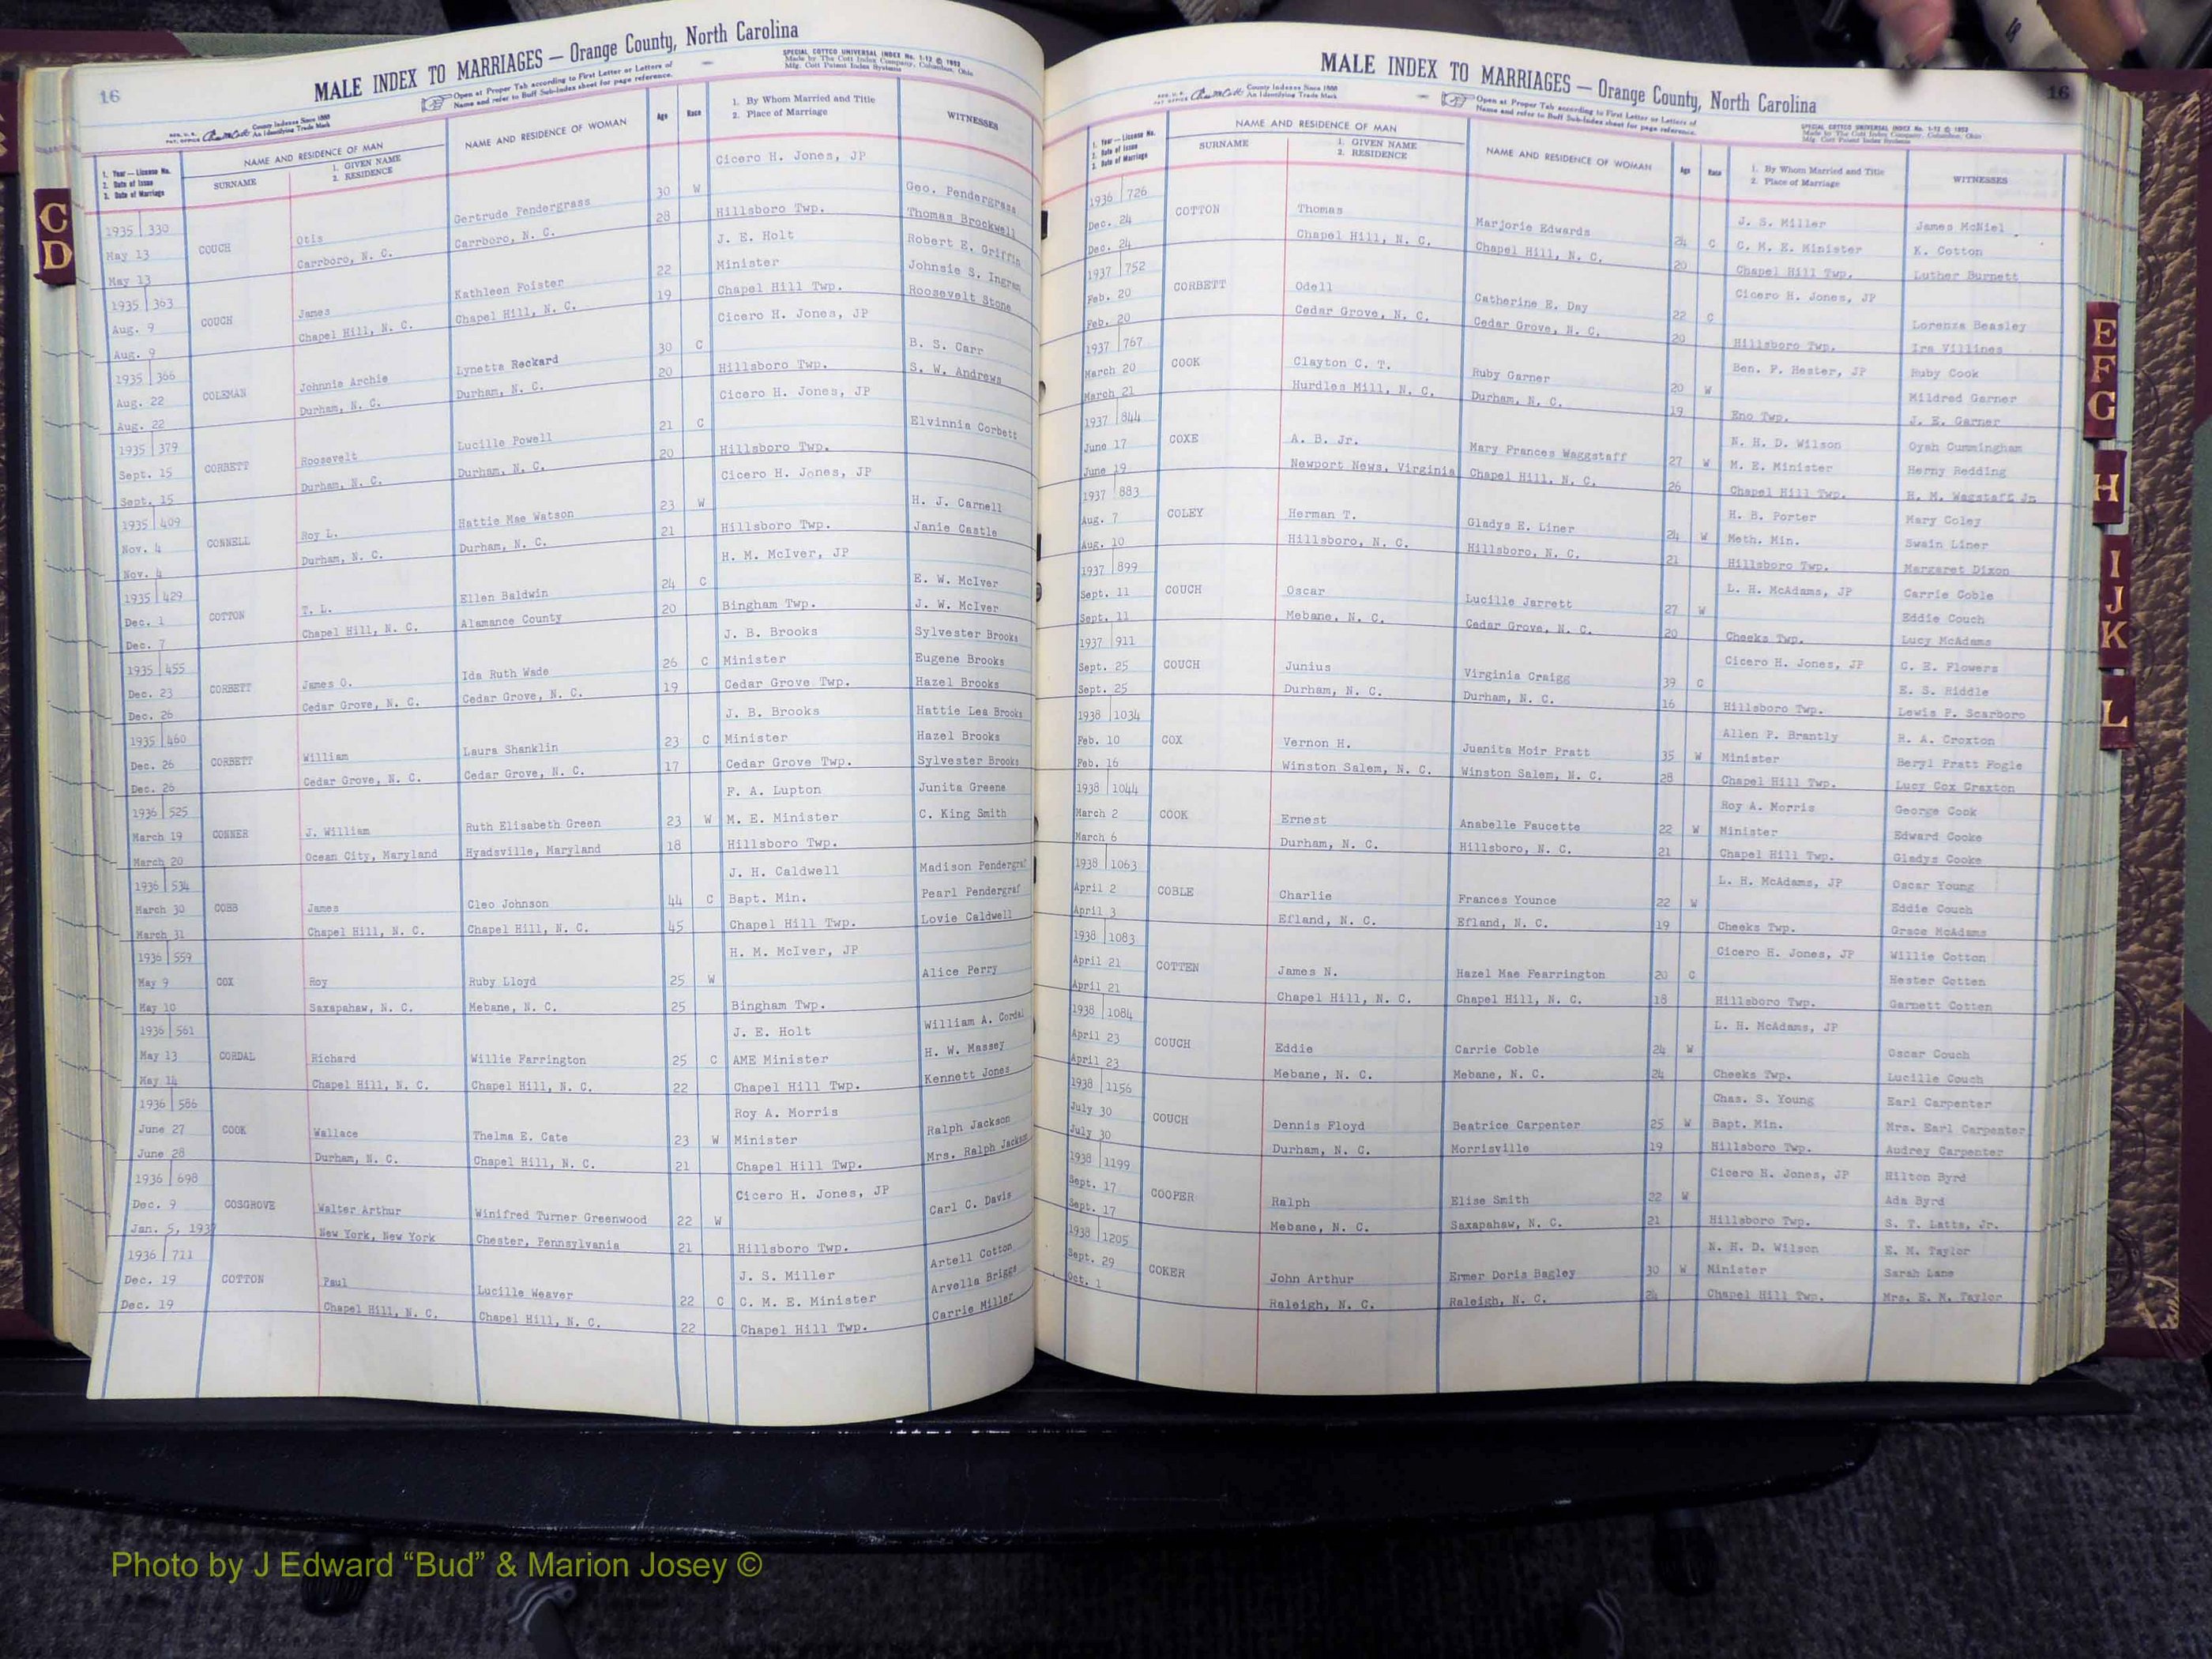 16
MALE INDEX TO MARRIAGES — Orange County, North Carolina
Open at Proper Tab according to First Letter or Letters of
Name and refer to Buff Sub-Index sheet for page reference.
SPECIAL COTTCO UNIVERSAL INDEX No. 1-12 © 1953
Made by The Cott Index Company, Columbus, Ohio
Mfg. Cott Patent Index Systems
County Indexes Since 1888
An Identifying Trade Mark
1. Year — License No.
2. Date of Issue
3. Date of Marriage
NAME AND RESIDENCE OF MAN
SURNAME
1. GIVEN NAME
2. RESIDENCE
NAME AND RESIDENCE OF WOMAN
Age
Race
1. By Whom Married and Title
2. Place of Marriage
WITNESSES
1935 330 Cicero H. Jones, JP
May 13 COUCH Otis Gertrude Pendergrass 30 W Geo. Pendergrass
May 13 Carrboro, N. C. Carrboro, N. C. 28 Hillsboro Twp. Thomas Brockwell
1935 363 J. E. Holt Robert E. Griffin
Aug. 9 COUCH James Kathleen Foister 22 Minister Johnsie S. Ingram
Aug. 9 Chapel Hill, N. C. Chapel Hill, N. C. 19 Chapel Hill Twp. Roosevelt Stone
1935 366 Cicero H. Jones, JP
Aug. 22 COLEMAN Johnnie Archie Lynette Reckard 30 C B. S. Carr
Aug. 22 Durham, N. C. Durham, N. C. 20 Hillsboro Twp. S. W. Andrews
1935 379 Cicero H. Jones, JP
Sept. 15 CORBETT Roosevelt Lucille Powell 21 C Elvinnia Corbett
Sept. 15 Durham, N. C. Durham, N. C. 20 Hillsboro Twp.
1935 409 Cicero H. Jones, JP
Nov. 4 CONNELL Roy L. Hattie Mae Watson 23 W H. J. Carnell
Nov. 4 Durham, N. C. Durham, N. C. 21 Hillsboro Twp. Janie Castle
1935 429 H. M. McIver, JP
Dec. 1 COTTON T. L. Ellen Baldwin 24 C E. W. McIver
Dec. 7 Chapel Hill, N. C. Alamance County 20 Bingham Twp. J. W. McIver
1935 455 J. B. Brooks Sylvester Brooks
Dec. 23 CORBETT James O. Ida Ruth Wade 26 C Minister Eugene Brooks
Dec. 26 Cedar Grove, N. C. Cedar Grove, N. C. 19 Cedar Grove Twp. Hazel Brooks
1935 460 J. B. Brooks Hattie Lea Brooks
Dec. 26 CORBETT William Laura Shanklin 23 C Minister Hazel Brooks
Dec. 26 Cedar Grove, N. C. Cedar Grove, N. C. 17 Cedar Grove Twp. Sylvester Brooks
1936 525 F. A. Lupton Junita Greene
March 19 CONNER J. William Ruth Elisabeth Green 23 W M. E. Minister C. King Smith
March 20 Ocean City, Maryland Hyadsville, Maryland 18 Hillsboro Twp.
1936 534 J. H. Caldwell Madison Pendergraf
March 30 COBB James Cleo Johnson 44 C Bapt. Min. Pearl Pendergraf
March 31 Chapel Hill, N. C. Chapel Hill, N. C. 45 Chapel Hill Twp. Lovie Caldwell
1936 559 H. M. McIver, JP
May 9 COX Roy Ruby Lloyd 25 W Alice Perry
May 10 Saxapahaw, N. C. Mebane, N. C. 25 Bingham Twp.
1936 561 J. E. Holt William A. Cordal
May 13 CORDAL Richard Willie Farrington 25 C AME Minister H. W. Massey
May 14 Chapel Hill, N. C. Chapel Hill, N. C. 22 Chapel Hill Twp. Kennett Jones
1936 586 Roy A. Morris
June 27 COOK Wallace Thelma E. Cate 23 W Minister Ralph Jackson
June 28 Durham, N. C. Chapel Hill, N. C. 21 Chapel Hill Twp. Mrs. Ralph Jackson
1936 698 Cicero H. Jones, JP
Dec. 9 COSGROVE Walter Arthur Winifred Turner Greenwood 22 W Carl C. Davis
Jan. 5, 1937 New York, New York Chester, Pennsylvania 21 Hillsboro Twp.
1936 711 J. S. Miller Artell Cotton
Dec. 19 COTTON Paul Lucille Weaver 22 C C. M. E. Minister Arvella Briggs
Dec. 19 Chapel Hill, N. C. Chapel Hill, N. C. 22 Chapel Hill Twp. Carrie Miller
C
D
16
MALE INDEX TO MARRIAGES — Orange County, North Carolina
County Indexes Since 1888
An Identifying Trade Mark
Open at Proper Tab according to First Letter or Letters of
Name and refer to Buff Sub-Index sheet for page reference.
SPECIAL COTTCO UNIVERSAL INDEX No. 1-12 © 1953
Made by The Cott Index Company, Columbus, Ohio
Mfg. Cott Patent Index Systems
1. Year — License No.
2. Date of Issue
3. Date of Marriage
NAME AND RESIDENCE OF MAN
SURNAME
1. GIVEN NAME
2. RESIDENCE
NAME AND RESIDENCE OF WOMAN
Age
Race
1. By Whom Married and Title
2. Place of Marriage
WITNESSES
1936 726 J. S. Miller James McNiel
Dec. 24 COTTON Thomas Marjorie Edwards 24 C C. M. E. Minister K. Cotton
Dec. 24 Chapel Hill, N. C. Chapel Hill, N. C. 20 Chapel Hill Twp. Luther Burnett
1937 752 Cicero H. Jones, JP
Feb. 20 CORBETT Odell Catherine E. Day 22 C Lorenza Beasley
Feb. 20 Cedar Grove, N. C. Cedar Grove, N. C. 20 Hillsboro Twp. Ira Villines
1937 767 Ben. F. Hester, JP Ruby Cook
March 20 COOK Clayton C. T. Ruby Garner 20 W Mildred Garner
March 21 Hurdles Mill, N. C. Durham, N. C. 19 Eno Twp. J. E. Garner
1937 844 N. H. D. Wilson Oyah Cummingham
June 17 COXE A. B. Jr. Mary Frances Waggstaff 27 W M. E. Minister Herny Redding
June 19 Newport News, Virginia Chapel Hill, N. C. 26 Chapel Hill Twp. H. M. Wagstaff Jr
1937 883 H. B. Porter Mary Coley
Aug. 7 COLEY Herman T. Gladys E. Liner 24 W Meth. Min. Swain Liner
Aug. 10 Hillsboro, N. C. Hillsboro, N. C. 21 Hillsboro Twp. Margaret Dixon
1937 899 L. H. McAdams, JP Carrie Coble
Sept. 11 COUCH Oscar Lucille Jarrett 27 W Eddie Couch
Sept. 11 Mebane, N. C. Cedar Grove, N. C. 20 Cheeks Twp. Lucy McAdams
1937 911 Cicero H. Jones, JP C. E. Flowers
Sept. 25 COUCH Junius Virginia Craigg 39 C E. S. Riddle
Sept. 25 Durham, N. C. Durham, N. C. 16 Hillsboro Twp. Lewis P. Scarboro
1938 1034 Allen P. Brantly R. A. Croxton
Feb. 10 COX Vernon H. Juanita Moir Pratt 35 W Minister Beryl Pratt Fogle
Feb. 16 Winston Salem, N. C. Winston Salem, N. C. 28 Chapel Hill Twp. Lucy Cox Craxton
1938 1044 Roy A. Morris George Cook
March 2 COOK Ernest Anabelle Faucette 22 W Minister Edward Cooke
March 6 Durham, N. C. Hillsboro, N. C. 21 Chapel Hill Twp. Gladys Cooke
1938 1063 L. H. McAdams, JP Oscar Young
April 2 COBLE Charlie Frances Younce 22 W Eddie Couch
April 3 Efland, N. C. Efland, N. C. 19 Cheeks Twp. Grace McAdams
1938 1083 Cicero H. Jones, JP Willie Cotton
April 21 COTTEN James N. Hazel Mae Fearrington 20 C Hester Cotten
April 21 Chapel Hill, N. C. Chapel Hill, N. C. 18 Hillsboro Twp. Garnett Cotten
1938 1084 L. H. McAdams, JP
April 23 COUCH Eddie Carrie Coble 24 W Oscar Couch
April 23 Mebane, N. C. Mebane, N. C. 24 Cheeks Twp. Lucille Couch
1938 1156 Chas. S. Young Earl Carpenter
July 30 COUCH Dennis Floyd Beatrice Carpenter 25 W Bapt. Min. Mrs. Earl Carpenter
July 30 Durham, N. C. Morrisville 19 Hillsboro Twp. Audrey Carpenter
1938 1199 Cicero H. Jones, JP Hilton Byrd
Sept. 17 COOPER Ralph Elise Smith 22 W Ada Byrd
Sept. 17 Mebane, N. C. Saxapahaw, N. C. 21 Hillsboro Twp. S. T. Latta, Jr.
1938 1205 N. H. D. Wilson E. M. Taylor
Sept. 29 COKER John Arthur Ermer Doris Bagley 30 W Minister Sarah Lane
Oct. 1 Raleigh, N. C. Raleigh, N. C. 24 Chapel Hill Twp. Mrs. E. M. Taylor
E
F
G
H
I
J
K
L
Photo by J Edward “Bud” & Marion Josey ©